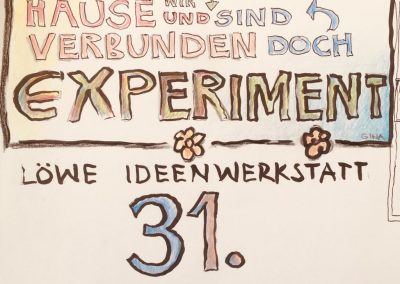 HAUSE WIR
UND SIND
VERBUNDEN DOCH
EXPERIMENT
GINA
LÖWE IDEENWERKSTATT
31.